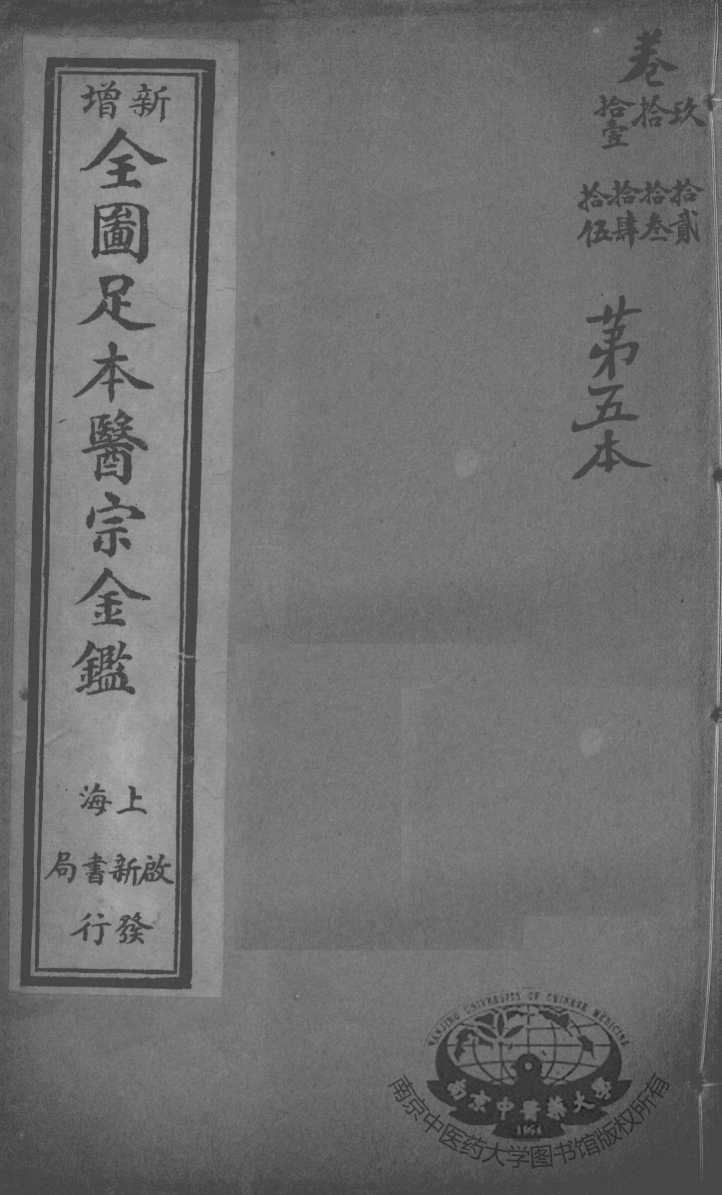 卷
玖
拾
拾壹
拾貳
拾叁
拾肆
拾伍
苐五本
新增
全圖足本醫宗金鑑
上海
啟新書局
發行
NANJING UNIVERSITY OF CHINESE MEDICINE
南京中醫藥大學
1954
南京中医药大学图书馆版权所有